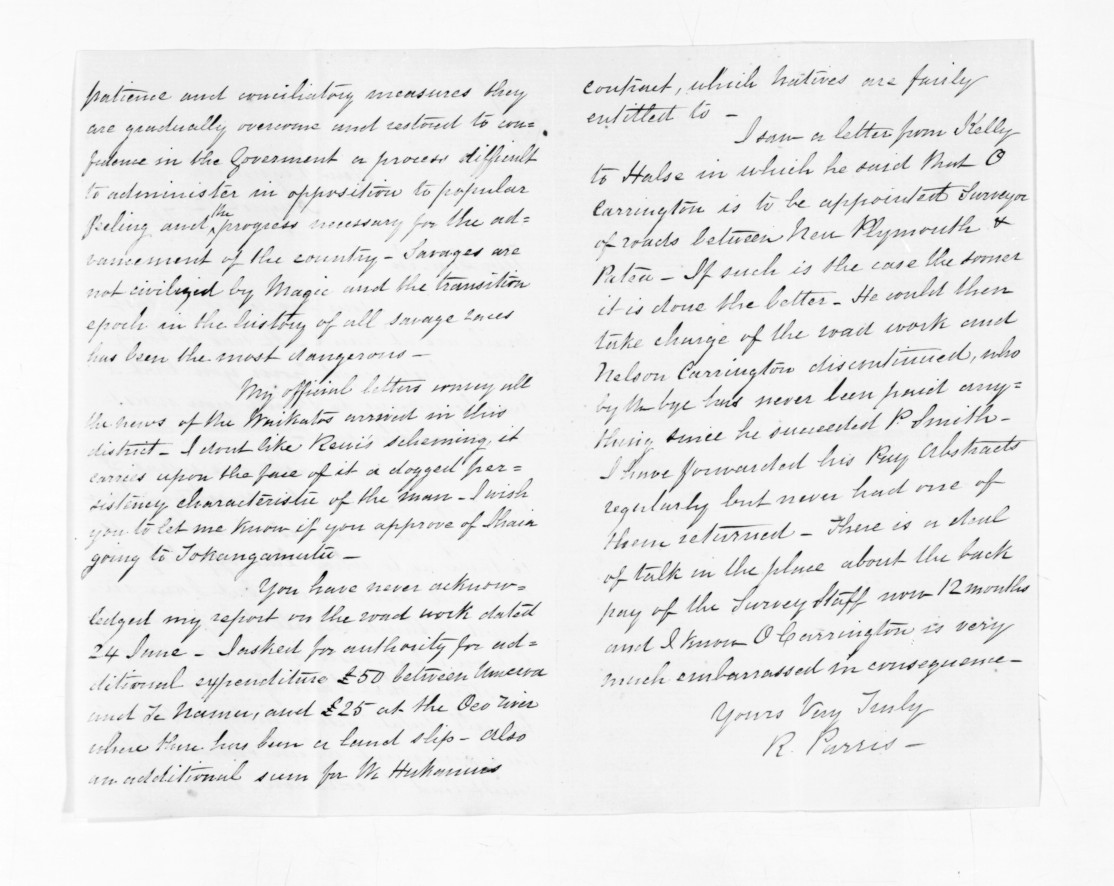 patience and conciliatory measures they
are gradually overcome and restored to con=
fidence in the Goverment a process difficult
to administer in opposition to popular
feeling and the progress necessary for the ad=
vancement of the country - Savages are
not civilized by Magic and the transition
epoch in the history of all savage races
has been the most dangerous -
My official letters convey all
the news of the Waikatos arrived in this
district - I dont like Rewi's scheming, it
carries upon the face of it a dogged per=
sistency characteristic of the man - I wish
you to let me know if you approve of Ihaia
going to Tokangamutu -
You have never acknow=
ledged my report on the road work dated
24 June - I asked for authority for ad=
ditional expenditure £50 between Umeroa
and Te Namu, and £25 at the Oeo river
where there has been a land slip - also
an additional sum for Wm Hukanuis
contract, which natives are fairly
entitled to -
I saw a letter from Kelly
to Halse in which he said that O
Carrington is to be appointed Surveyor
of roads between New Plymouth &
Patea - If such is the case the sooner
it is done the better - He could then
take charge of the road work and
Nelson Carrington discontinued, who
by the bye has never been paid any=
thing since he succeeded P. Smith -
I have forwarded his Pay Abstracts
regularly but never had one of
them returned - There is a deal
of talk in the place about the back
pay of the Survey Staff now 12 months
and I know O Carrington is very
much embarrassed in consequence -
Yours Very Truly
R. Parris -